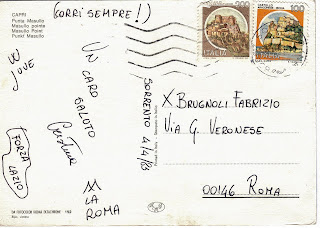 CAPRI
Punta Masullo
Masullo pointe
Masullo Point
Punkt Masullo
(CORRI SEMPRE!)
W JUVE
UN CARO SALUTO
Cristina
FORZA LAZIO
M LA ROMA
SORRENTO
4/4/83
200
ITALIA
200
X BRUGNOLI FABRIZIO
VIA G. VERONESE
00146 ROMA